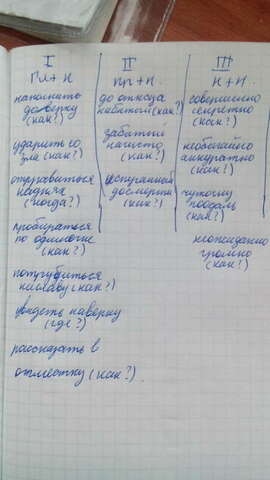 I
Гл + Н
наполнить
доверху
(как?)
ударить со
зла (как?)
отправиться
надня́х
(когда?)
пробираться
по одиночке
(как?)
потрудиться
на славу (как?)
увидеть наверху
(где?)
рассказать в
отместку (как?)
II
Пр + Н
до отказа
набитый (как?)
забитый
наглухо
(как?)
испуганный
досмерти
(как?)
III
Н + Н
совершенно
секретно
(как?)
необычайно
аккуратно
(как?)
чуточку
поодаль
(как?)
неожиданно
громко
(как?)